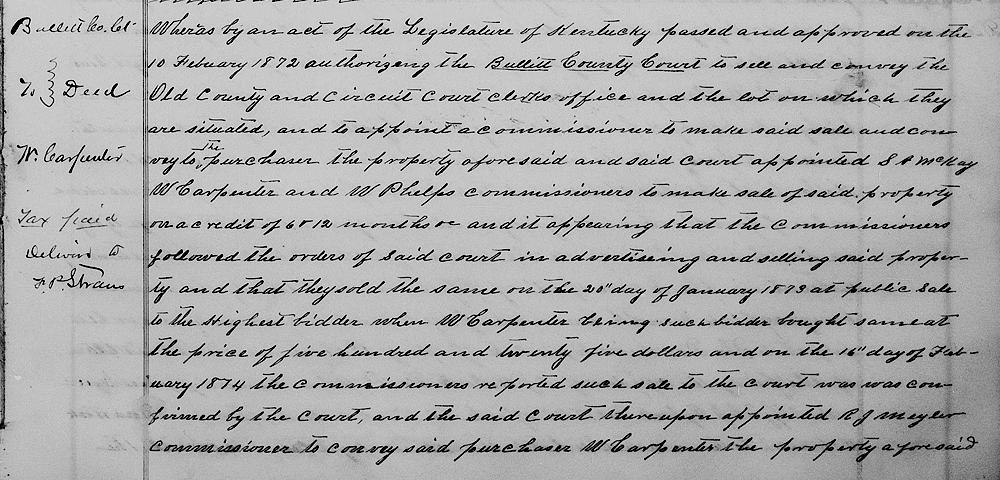 Bullitt Co. Ct
To } Deed
W. Carpenter
Tax paid
Deliverd to
F. P. Straus
Wheras by an act of the Legislature of Kentucky passed and approved on the
10 Febuary 1872 authorizeng the Bullitt County Court to sell and convey the
Old County and Circuit Court clerks office and the lot on which they
are situated, and to appoint a commissioner to make said sale and con-
vey to the purchaser the property aforesaid and said court appointed S P McKay
W Carpenter and W Phelps commissioners to make sale of said property
on a credit of 6 & 12 months &c and it appearing that the commissioners
followed the orders of said court in advertiseing and selling said proper-
ty and that they sold the same on the 20" day of January 1873 at public sale
to the Highest bidder when W Carpenter being such bidder bought same at
the price of five hundred and twenty five dollars and on the 16" day of Feb-
uary 1874 the commissioners reported such sale to the court was was con-
firmed by the court, and the said court thereupon appointed R J Meyler
commissioner to convey said purchaser W Carpenter the property aforesaid